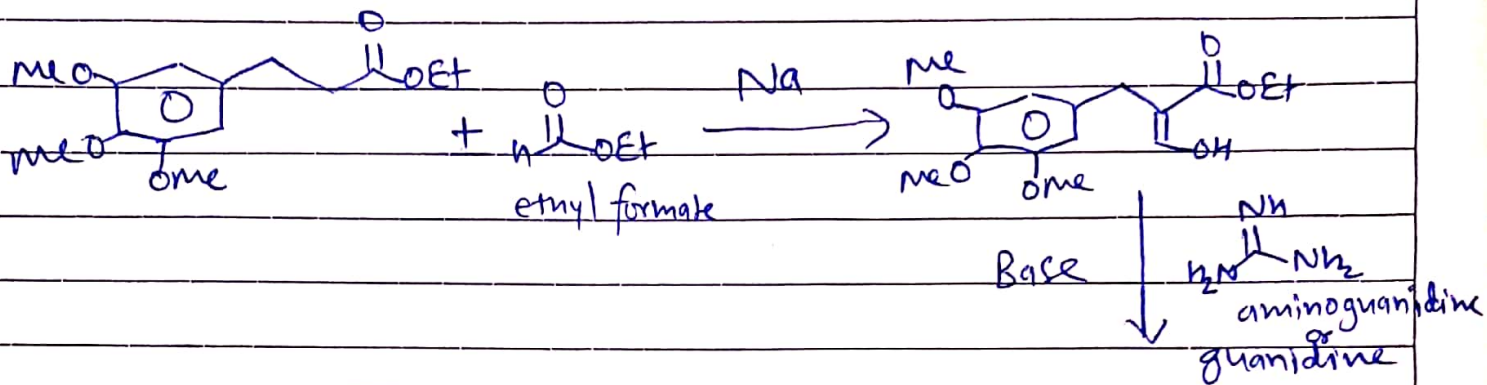 O
MeO OEt
MeO OMe
+
O
H OEt
ethyl formate
Na
Me
O
O
OEt
OH
MeO OMe
Base
NH
H₂N NH₂
aminoguanidine
or
guanidine